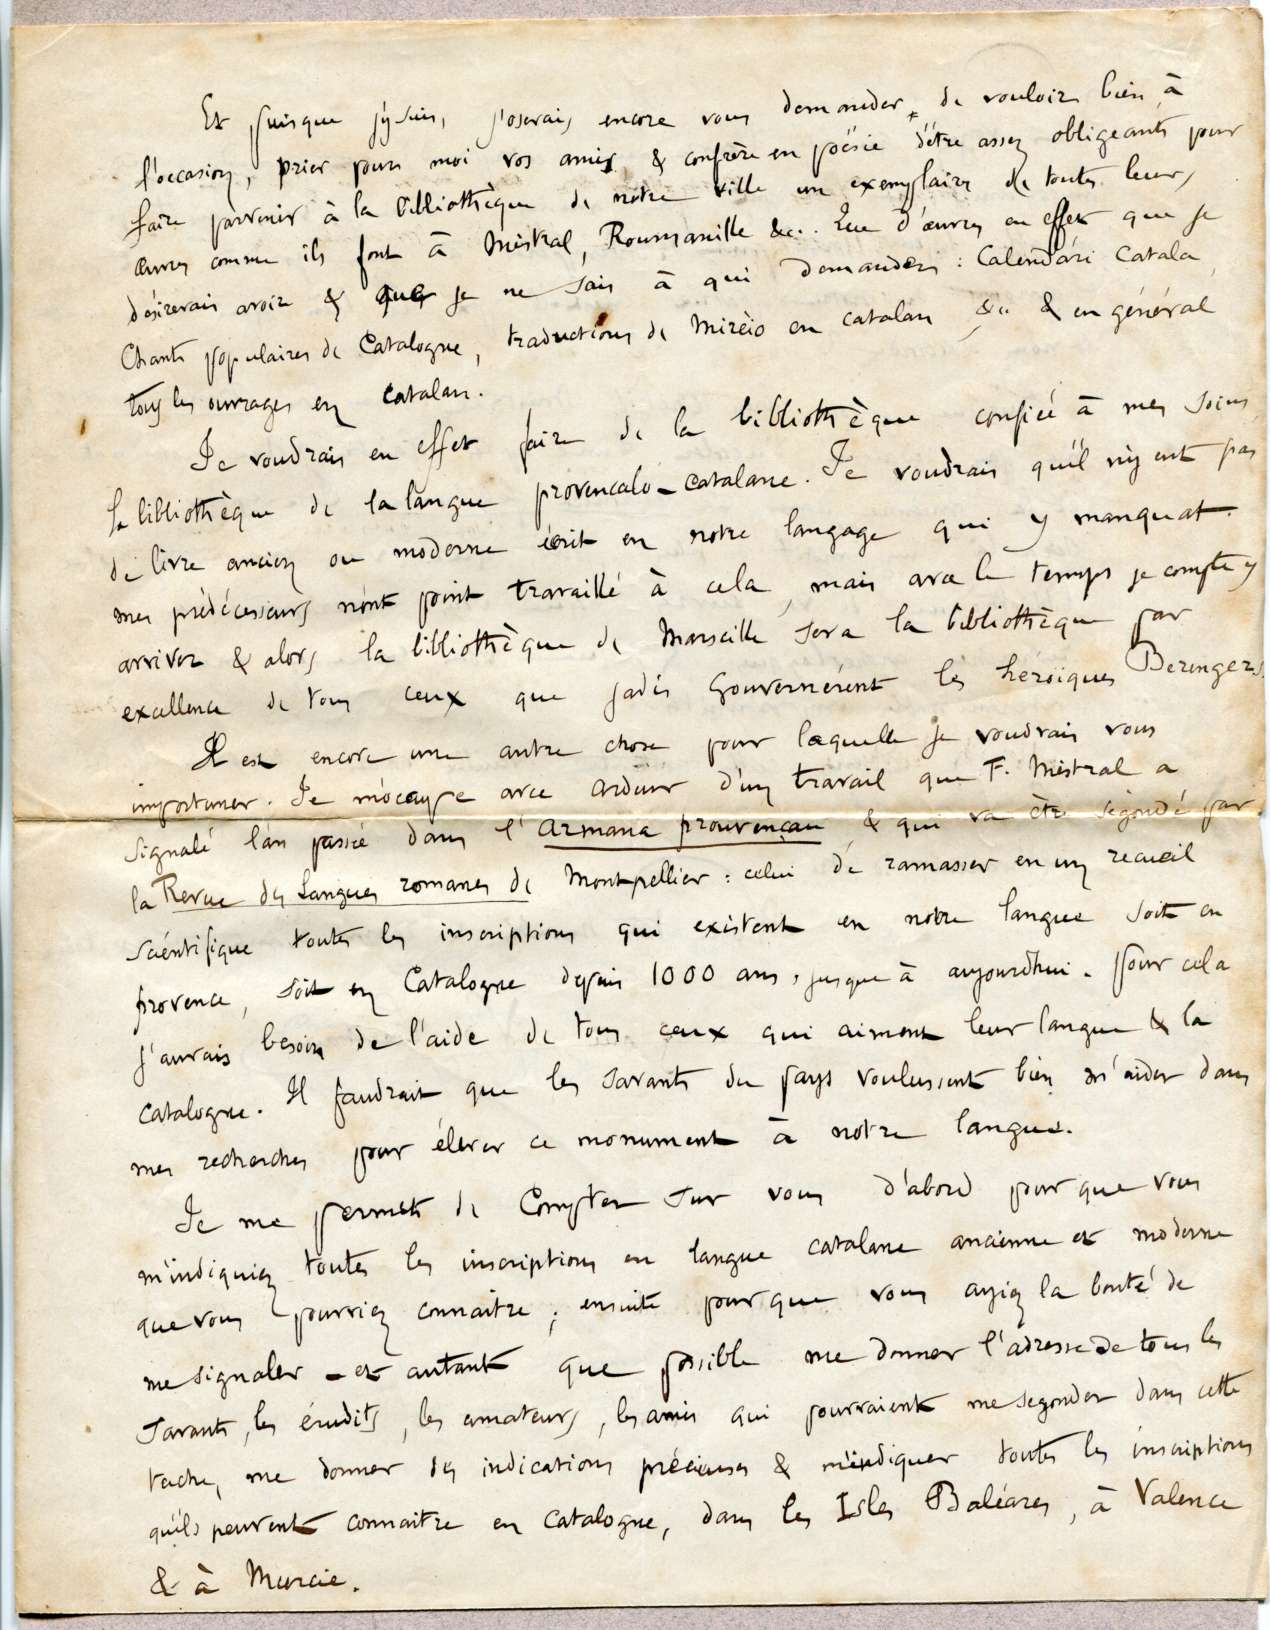 Et puisque j'y suis, j'oserais encore vous demander, de vouloir bien, à
l'occasion, prier pour moi vos amis & confrère en poësie d'être assez obligeants pour
faire parvenir à la bibliothèque de notre ville un exemplaire de toutes leurs
œuvres comme ils font à Mistral, Roumanille &c.. Que d'œuvres en effet que je
désirerais avoir & que je ne sais à qui demander : Calendari Catala,
Chants populaires de Catalogne, traductions de Mirèio en catalan &c. & en général
tous les ouvrages en catalan.
Je voudrais en effet faire de la bibliothèque confiée à mes soins
la bibliothèque de la langue provençalo-catalane. Je voudrais qu'il n'y eut pas
de livre ancien ou moderne écrit en notre langage qui y manquat.
mes prédécesseurs n'ont point travaillé à cela, mais avec le temps je compte y
arriver & alors la bibliothèque de Marseille sera la bibliothèque par
excellence de tous ceux que jadis gouvernérent les héroïques Berengers.
Il est encore une autre chose pour laquelle je voudrais vous
importuner. Je m'ocupe avec ardeur d'un travail que F. Mistral a
signalé l'an passé dans l'Armana prouvençau & qui va être segondé par
la Revue des Langues romanes de Montpellier : celui de ramasser en un recueil
sciéntifique toutes les inscriptions qui existent en notre langue soit en
provence, soit en Catalogne depuis 1000 ans, jusque à aujourdhui. Pour cela
j'aurais besoin de l'aide de tous ceux qui aiment leur langue & la
catalogne. Il faudrait que les savants du pays voulussent bien m'aider dans
mes recherches pour élever ce monument à notre langue.
Je me permets de Compter sur vous d'abord pour que vous
m'indiquiez toutes les inscriptions en langue catalane ancienne et moderne
que vous pourriez connaitre ; ensuite pour que vous ayiez la bonté de
me signaler - et autant que possible me donner l'adresse de tous les
savants, les érudits, les amateurs, les amis qui pourraient me segonder dans cette
tache, me donner des indications précieuses & m'indiquer toutes les inscriptions
qu'ils peuvent connaitre en Catalogne, dans les Isles Baléares, à Valence
& à Murcie.